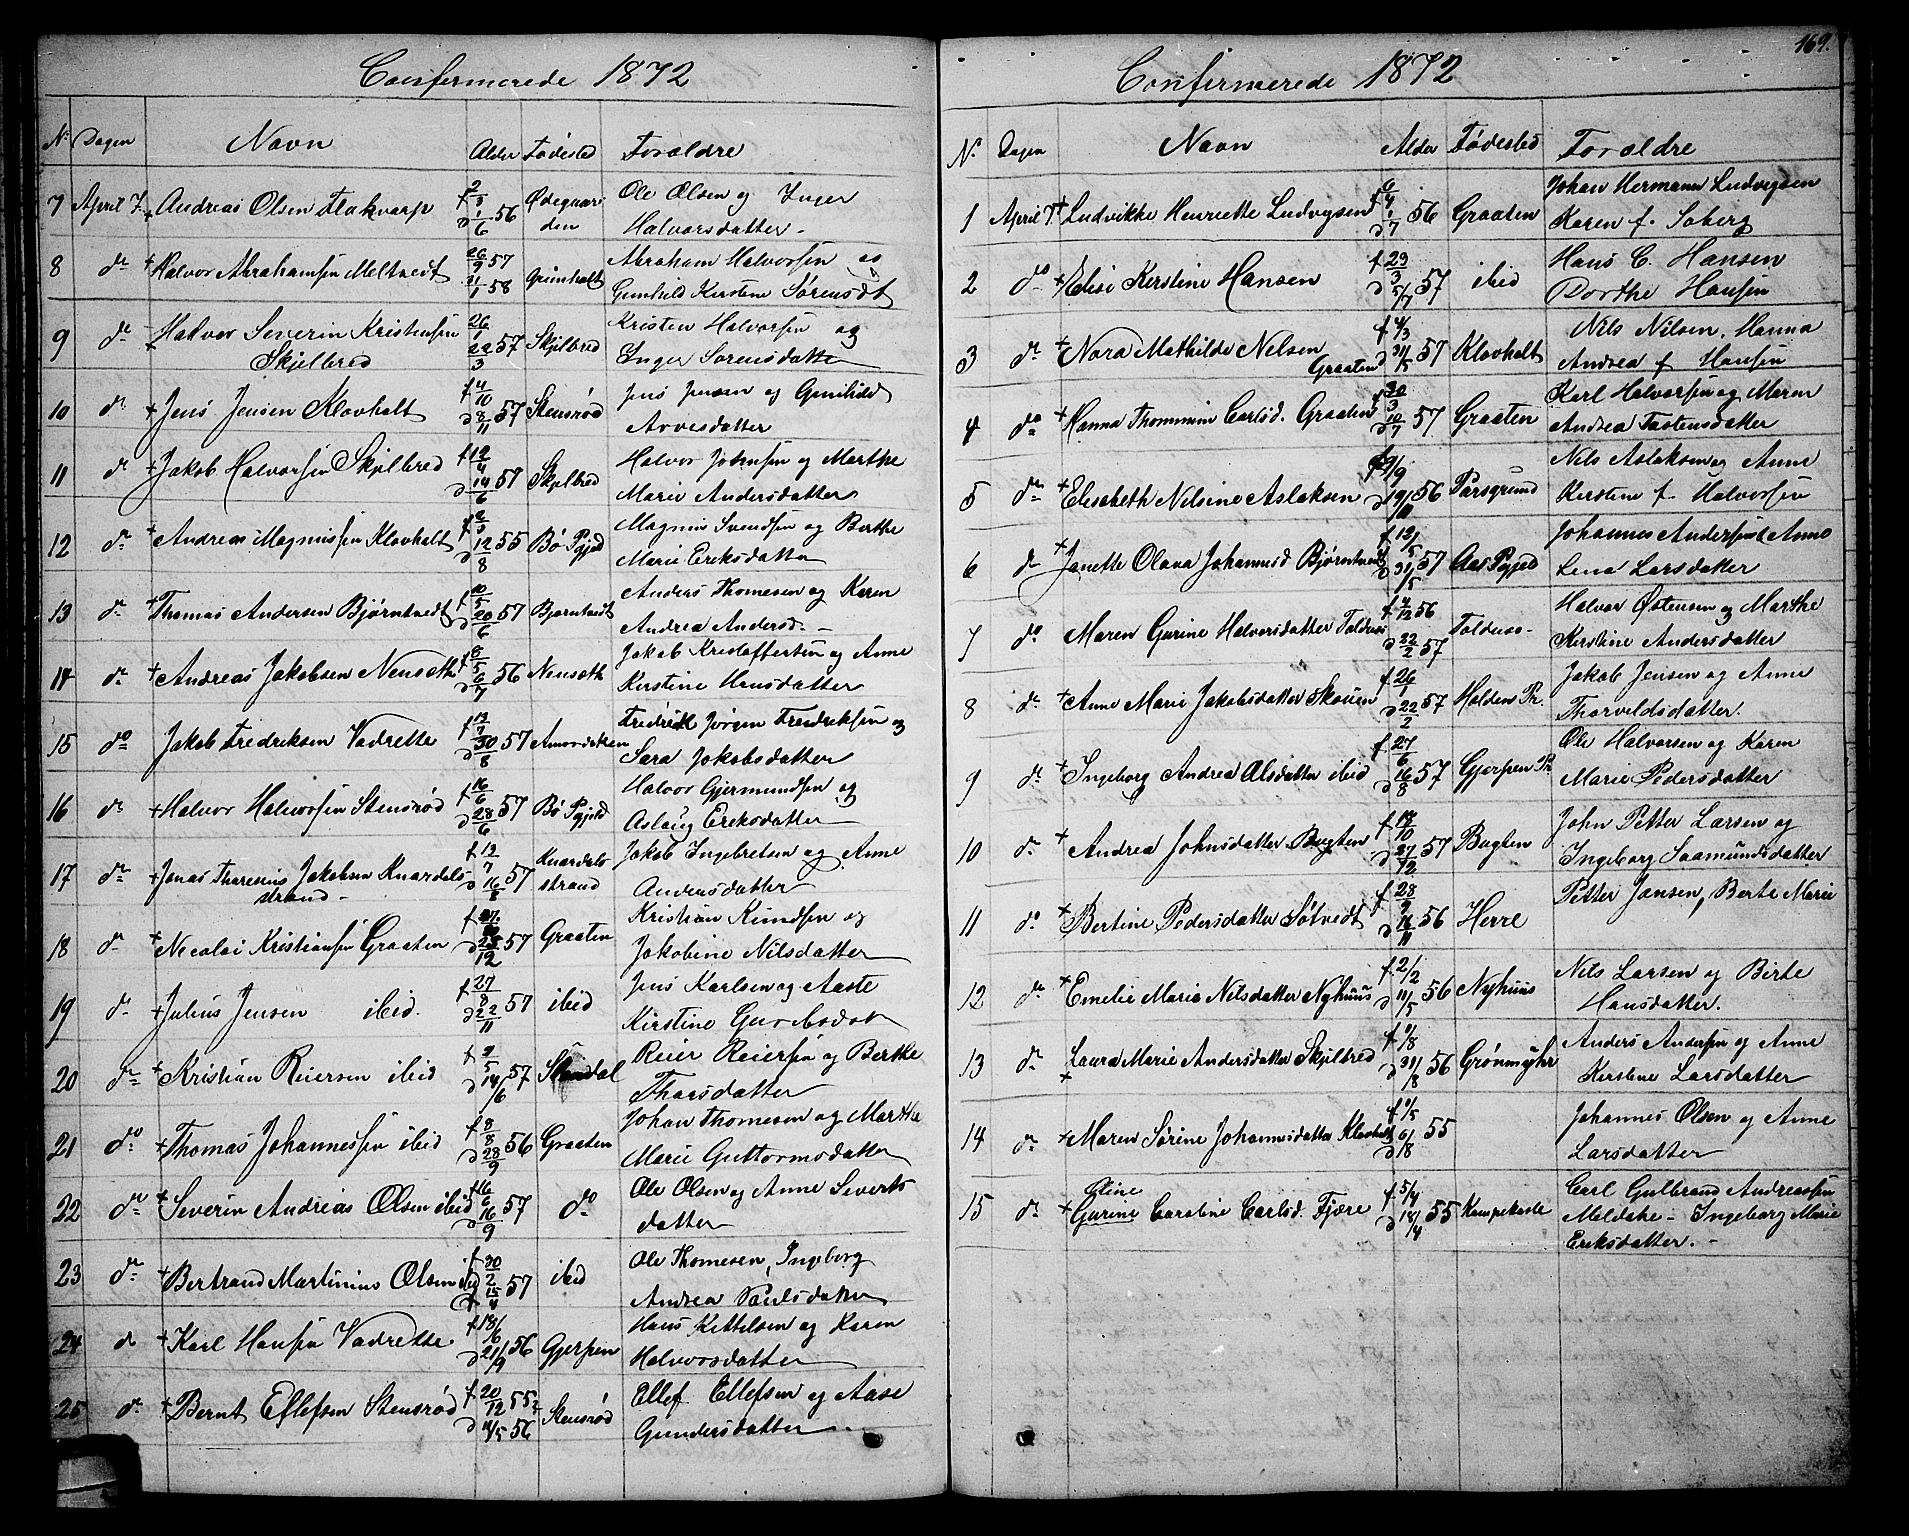 Confermerede 1872
N. Dagen Navn Alder Fødested Foraldre
7 April 7. + Andreas Olsen Flakvarp f 2/3 d 1/6 56 Ødegaarden Ole Olsen og Inger
Halvorsdatter
8 do + Halvor Abrahamsen Meltvedt 26/9 57 31/1 58 Grimholt Abraham Halvorsen og
Gunhild Kerstene Sørensdt
9 do + Halvor Severin Kristensen
Skjelbred 26/1 22/3 57 Skjelbred Kristen Halvorsen og
Inger Sorensdatter
10 do + Jens Jensen Klovholt f 4/10 d 8/11 57 Stensrød Jens Jensen og Gunhild
Arvesdatter
11 do + Jakob Halvorsen Skjelbred f 12/4 d 14/6 57 Skjelbred Halvor Johnsen og Marthe
Marie Andersdatter
12 do + Andreas Magnussen Klovholt f 2/3 d 12/8 55 Bø Pgjed Magnus Svendsen og Berthe
Marie Eriksdatter
13 do + Thomas Andersen Bjørntvedt f 10/5 d 20/6 57 Bjorntvedt Anders Thomesen og Karen
Andrea Andersd.
14 do + Andreas Jakobsen Nenseth f 8/5 d 6/7 56 Nenseth Jakob Kristoffersen og Anne
Kerstine Hansdatter
15 do Jakob Fredriksen Vadrette f 13/7 d 30/8 57 Fredrik Jørgen Fredriksen og
Sara Jakobsdatter
16 do + Halvor Halvorsen Stensrød f 16/6 d 28/6 57 Bø Pgjeld Halvor Gjermundsen og
Aslaug Ereksdatter
17 do + Jonas Tharenius Jakobsen Knardals-
strand f 13/7 d 16/8 57 Knardalsstrand Jakob Ingebretsen og Anne
Andersdatter
18 do + Necolai Kristiansen Graaten f 27/10 d 25/12 57 Graaten Kristian Knudsen og
Jakobine Nilsdatter
19 do + Julius Jensen ibid. f 27/8 d 22/11 57 ibid Jens Karlsen og Aaste
Kirstine
20 do + Kristian Reiersen ibid f 9/5 d 14/6 57 Standal Reier Reiersen og Berthe
Tharsdatter
21 do + Thomas Johannessen ibid f 8/8 d 28/9 56 Graaten Johan Thomesen og Marthe
Marie Guttormsdatter
22 do + Severin Andreas Olsen ibid f 16/6 d 16/9 57 do Ole Olsen og Anne Siverts
datter
23 do + Bertrand Martinius Olsen ibid f 30/2 d 15/4 57 ibid Ole Thomesen, Ingeborg
Andrea Paulsdatter
24 do + Karl Hansen Vadrette f 18/6 d 21/9 56 Gjerpen Hans Kittelsen og Karen
Halvorsdatter
25 do + Bernt Ellefsen Stensrød f 20/12 55 d 4/5 56 Stensrød Ellef Ellefsen og Aase
Gundersdatter
169.
Confermerede 1872
N. Dagen Navn Alder Fødested Foraldre
1 April 7. + Ludvikke Henriette Ludvigsen f 6/4 d 1/7 56 Graaten Johan Hermann Ludvigsen
Karen f. Soberg
2 do + Elise Kerstine Hansen f 23/3 d 5/7 57 ibid Hans C. Hansen
Dorthe Hansen
3 do + Nora Mathilde Nelsen
Graaten f 4/3 d 31/5 57 Klovholt Nils Nilsen, Hanna
Andrea f Hansen
4 do + Hanna Thommine Carlsd. Graaten f 30/3 d 10/7 57 Graaten Karl Halvorsen og Maren
Andrea Tostensdatter
5 do + Elisabeth Nelsine Aslaksen f 9/9 d 19/10 56 Porsgrund Nils Aslaksen og Anne
Kerstine f. Halvorsen
6 do + Janette Olava Johannesd Bjørntvedt f 12/5 d 31/5 57 Aas Pgjed Johannes Andersen & Anne
Lena Larsdatter
7 do Maren Gurine Halvorsdatter Toldnes f 4/12 56 d 22/2 57 Halvor Østensen og Marthe
Kirstine Andersdatter
8 do + Anne Marie Jakobsdatter Skouen f 26/1 d 22/2 57 Holden Pr. Jakob Jensen og Anne
Thorvildsdatter.
9 do + Ingeborg Andrea Olsdatter ibid f 27/6 d 16/8 57 Gjerpen Pr Ole Halvorsen og Karen
Marie Pedersdatter
10 do + Andrea Johnsdatter Bugten f 18/10 d 27/12 57 Bugten John Petter Larsen og
Ingeborg Saamundsdatter
11 do + Bertine Pedersdatter Søtvedt f 28/9 d 16/11 56 Herre Petter Jansen, Berte Marie
12 do + Emelie Marie Nilsdatter Nyhuus f 2/2 d 11/5 56 Nyhuus Nils Larsen og Birte
Hansdatter.
13 do + Laura Marie Andersdatter Skjelbred f 1/8 d 31/8 56 Grønmyhr Anders Andersen og Anne
Kerstine Larsdatter
14 do + Maren Sørine Johannesdatter Klovholt f 1/5 d 6/8 55 Johannes Olsen og Anne
Larsdatter
15 do + Oline
Gurine Caroline Carlsd. Fjære f 5/4 d 18/4 55 Kampekaste Carl Gulbrand Andreassen
Meldahe - Ingeborg Marie
Eriksdatter.